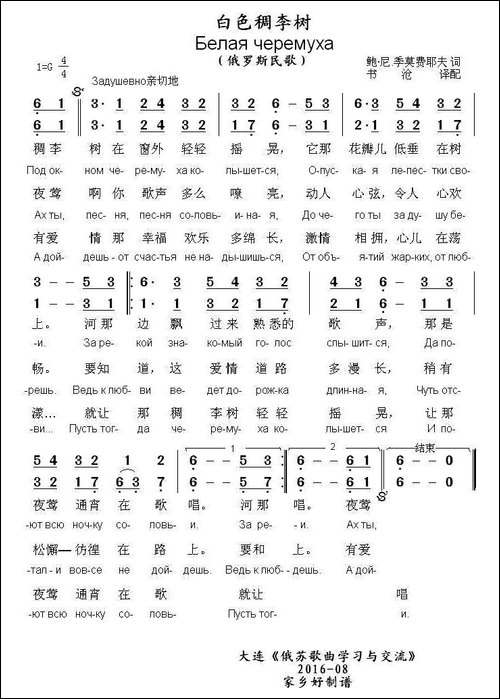 白色稠李树
Белая черемуха
(俄罗斯民歌)
1=G 4/4
鲍·尼.季莫费耶夫 词
书 沧 译配
Задушевно亲切地
稠李 树在 窗外 轻轻 摇 晃, 它那 花瓣儿 低垂 在树
Под ок- ном че-ре-му-ха ко- лы-шет-ся, О-пус- ка-я ле-пес-тки сво-
夜莺 啊你 歌声 多么 嘹 亮, 动人 心弦, 令人 心欢
Ах,ты, пес-ня, пес-ня соловь- и-на-я, До че- го ты за ду-шу бе-
有爱 情那 幸福 欢乐 多绵 长, 激情 相拥, 心儿 在荡
А дой- дешь-от счас-тья не на- ды-шишь-ся, От объ- я-тий жар-ких, от люб-
上。 河那 边飘 过来 熟悉的 歌 声, 那是
-и. За ре- кой зна- ко-мый го-лос слы-шит-ся, Да по-
畅。 要知 道,这 爱情 道路 多 漫长, 稍有
-решь. Ведь к люб- ви ве- дет до-рож-ка длин-на-я, Чуть отс-
漾… 就让 那稠 李树 轻轻 摇 晃, 让那
-ви... Пусть тог- да че-ре-му-ха ко- лы-шется И по-
1 2 结束
夜莺 通宵 在 歌 唱。 河那 唱。 夜莺
-ют всю ноч-ку со- ловь- и. За ре- и. Ах,ты,
松懈—彷徨 在 路 上。 要和 上。 有爱
-тал-и вов-се не дой- дешь. Ведь к люб- дешь. А дой-
夜莺 通宵 在 歌 就让 唱
-ют всю ноч-ку со- ловь- Пусть тог- и.
大连《俄苏歌曲学习与交流》
2016-08
家乡好制谱